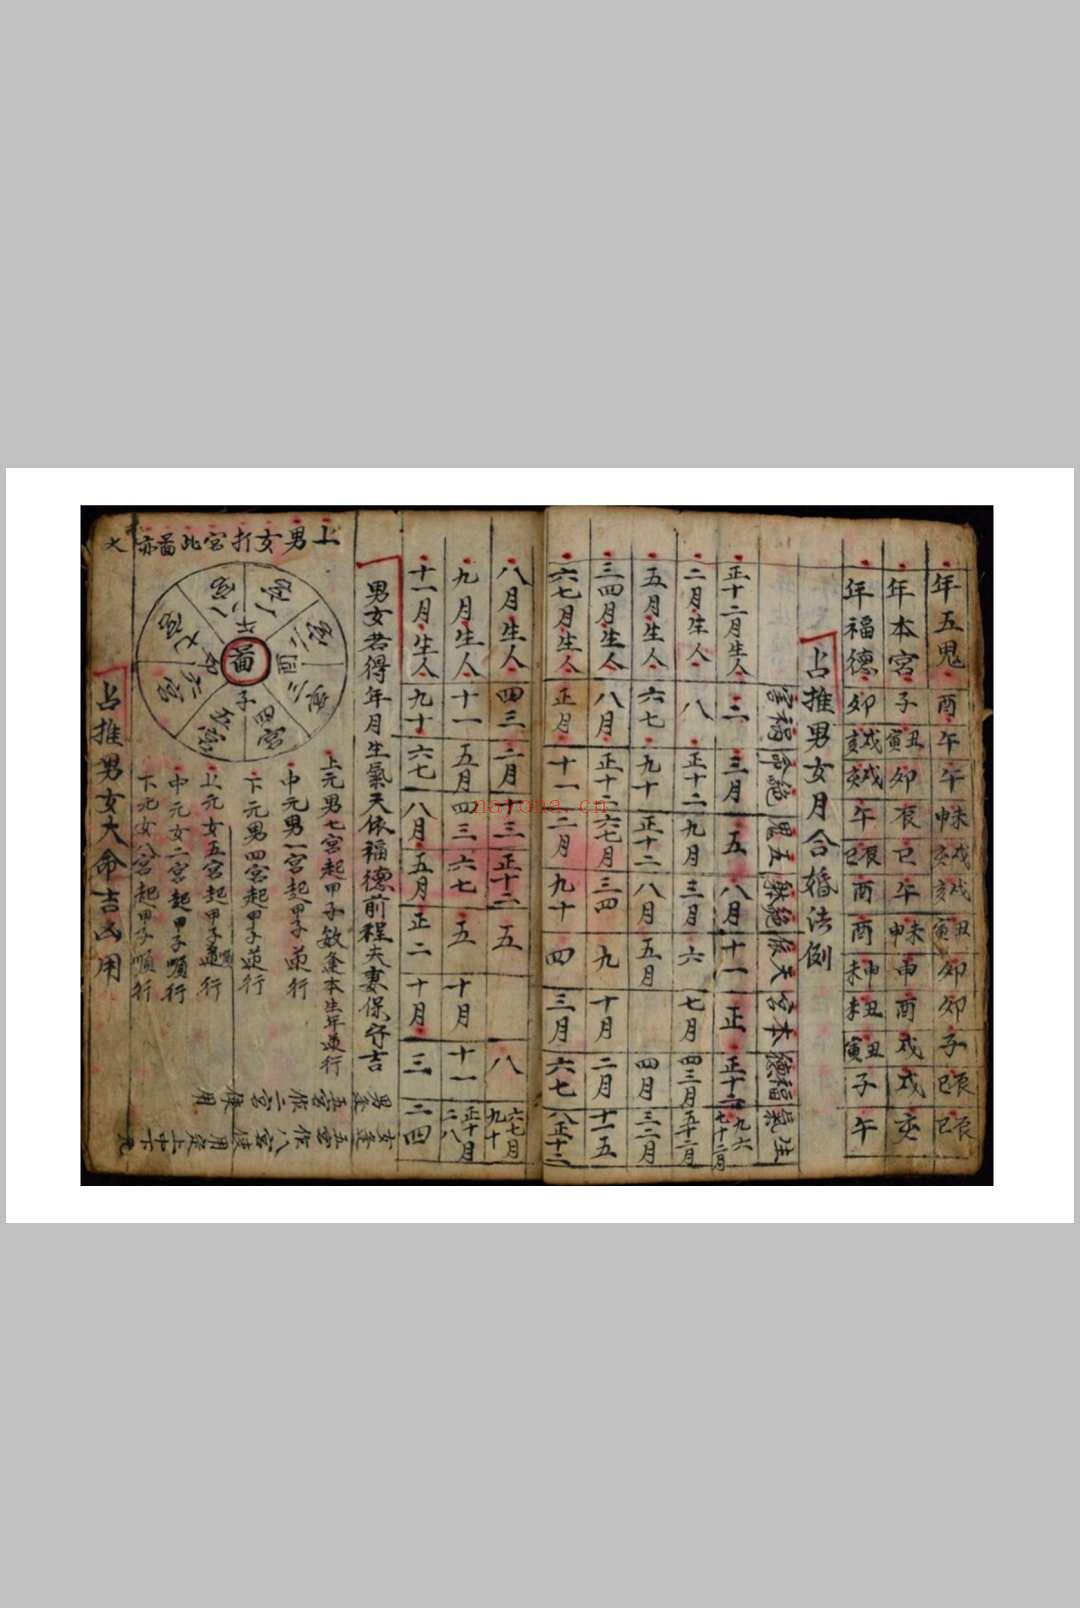 年五鬼 酉 午 午 申未 亥戌 亥戌 寅丑 卯 卯 子 巳辰 巳辰
年本宮 子 寅丑 卯 辰 巳 午 申未 申 酉 戌 戌 亥
年福德 卯 亥戌 亥戌 午 巳辰 酉 酉 未申 未丑 寅丑 子 午
占推男女月合婚法例
絕命 五鬼 絕躰 天 本宮 福德 生氣
正十二月生人 二 三月 五 八月 十一 正 正十二 九六 七十二月
二月生人 八 正十二 九月 三月 六 七月 四三月
五月生人 六七 九十 正十二 八月 五月 四月 三二月
三四月生人 八月 正十二 六七月 三四 九 十月 二月 十一五
六七月生人 正月 十一 二月 九十 四 三月 六七 八正十二
八月生人 四三 二月 十三 正十二 五 八 六七月 九十
九月生人 十一 五月 四三 六七 五 十月 十一 正十月 二八
十一月生人 九十 六七 八月 五月 正二 十月 三 二四
男女若得年月生氣天依福德前程夫妻保守吉
上男女打宮此啚亦大
啚
上元男七宮起甲子數逢本生年逆行
中元男一宮起甲子逆行
下元男四宮起甲子逆行
上元女五宮起甲子順行
中元女二宮起甲子順行
下元女八宮起甲子順行
男逢五宮作二宮使用
女逢五宮作八宮使用
占推男女大命吉凶用
nayona.cn